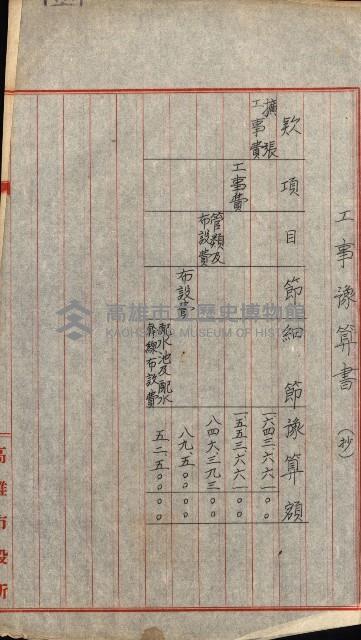 工事豫算書（抄）
款 項 目 節 細節 豫算額
擴張工事費 一六四三六六一〇〇
工事費 一五五三六六一〇〇
管類及布設費 八四六三九三〇〇
布設費 八九五〇〇〇〇
配水池及配水幹線布設費 五二五〇〇〇〇
高雄市役所
高雄市立歷史博物館
KAOHSIUNG MUSEUM OF HISTORY